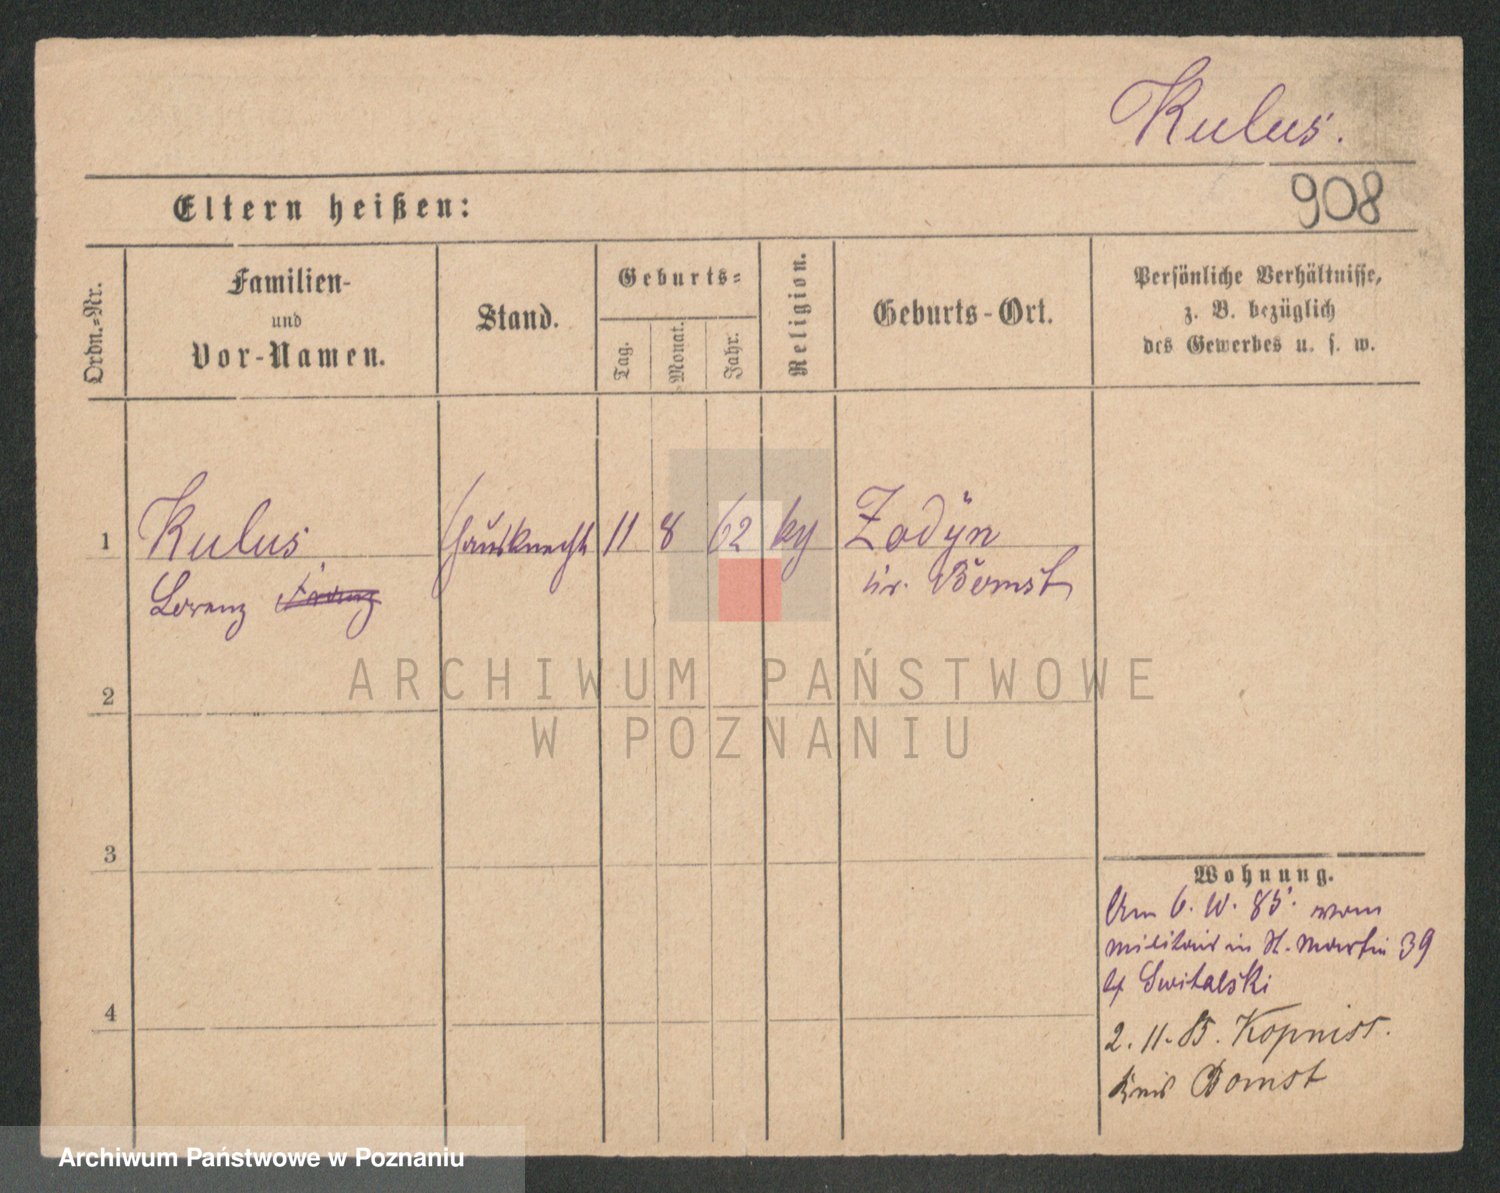 Kulus.
908
Eltern heißen:
Ordn.-Nr.
Familien-
und
Vor-Namen.
Stand.
Geburts-
Tag.
Monat.
Jahr.
Religion.
Geburts-Ort.
Persönliche Verhältnisse,
z. B. bezüglich
des Gewerbes u. s. w.
1
Kulus
Hausknecht
11
8
62
Zodÿn
Lorenz
Kr. Bomst
2
3
4
Wohnung.
Am 6. 10. 85. vom
militair in St. Martin 39
Switalski
2. 11. 85. Kopnitz.
Kreis Bomst
ARCHIWUM PAŃSTWOWE
W POZNANIU
Archiwum Państwowe w Poznaniu